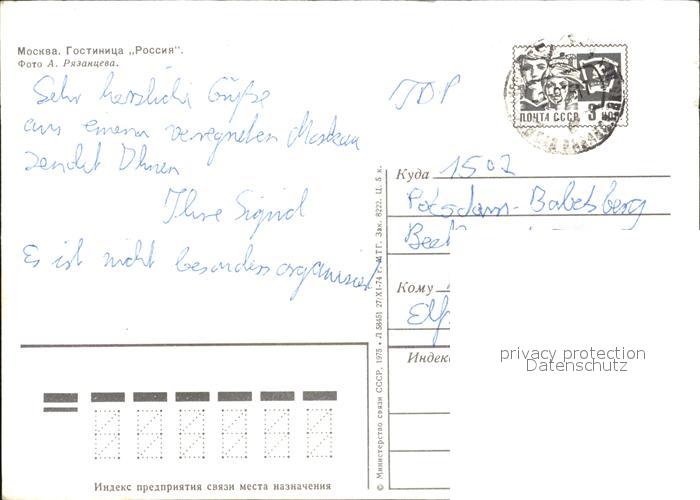 Москва. Гостиница „Россия".
Фото А. Рязанцева.
Sehr herzliche Grüße
aus einem veregneten Moskau
sendet Ihnen
Ihre Sigrid
Es ist nicht besonders organisiert
ГДР
ПОЧТА СССР
Куда 1502
Potsdam-Babelsberg
Beet
Кому
Elf
Индекс
privacy protection
Datenschutz
© Министерство связи СССР, 1975 • Л 58451 27/XI-74 г. МТГ. Зак. 8222. Ц. 5 к.
Индекс предприятия связи места назначения